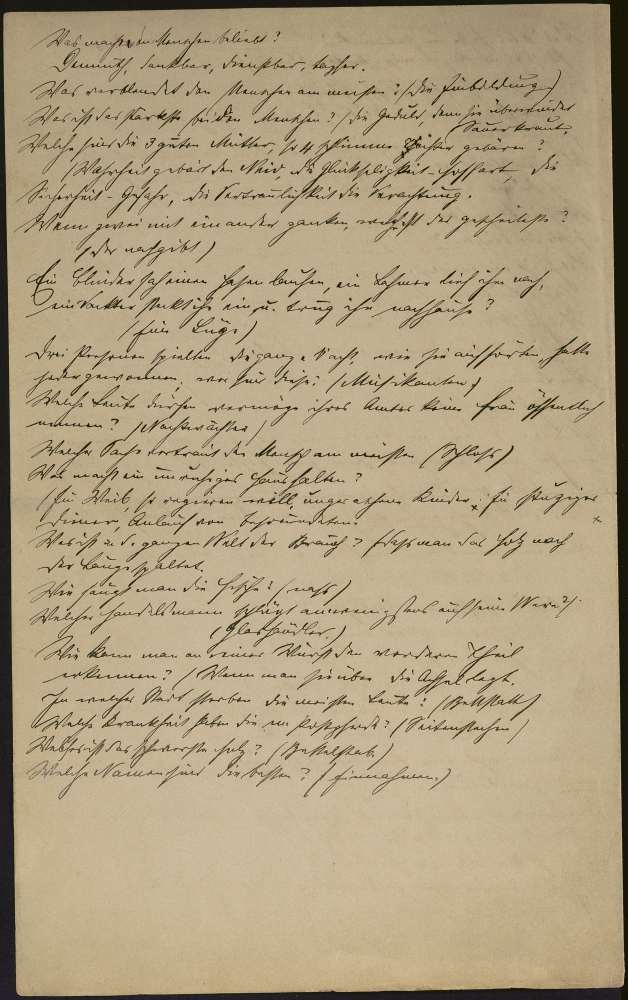 Was macht den Menschen beliebt?
Demuth, dankbar, dienstbar,
Was verblendet den Menschen am meisten? (die Einbildung)
Was ist das stärkste bei den Menschen? (die Geduld, denn sie überwindet
Sauerkraut.
Welche sind die 3 guten Mütter, so 4 schlimme Töchter gebären?
(Wahrheit gebärt den Neid, die Glückseligkeit - Hoffart, die
Sicherheit - Gefahr, die Vertraulichkeit die Verachtung.
Wenn zwei mit einander zanken, welcher ist der gescheiteste?
(der nachgibt)
Ein Blinder sah einen Hasen laufen, ein Lahmer lief ihm nach,
ein Nackter steckt ihn ein u. trug ihn nachhause?
(Eine Lüge)
Drei Personen spielten die ganze Nacht, wie sie aufhörten, hatte
jeder gewonnen, wer sind diese? (Musikanten)
Welche Leute dürfen vermöge ihres Amtes keine Frau öffentlich
nennen? (Nachtwächter)
Welche Sache vertreibt der Mensch am meisten (Schlaf)
Was macht ein unruhiges Haushalten?
(Ein Weib, so regieren will, ungerathene Kinder, ein stutziger
Diener, Anlauf von Befreundeten.
Was ist in d. ganzen Welt der Brauch? (dass man das Holz nach
der Länge spaltet.
Wie fängt man die Fische? (nass)
Welcher Handelsmann schlägt am wenigsten auf seine Ware?
(Glashändler.)
Wie kann man an einer Wurst den vorderen Theil
erkennen? (Wenn man sie über die Achsel legt.
In welcher Stadt sterben die meisten Leute? (Bettstatt)
Welche Krankheit haben die Postpferde? (Seitenstechen)
Welches ist das schwerste Holz? (Bettelstab.)
Welche Namen sind die besten? (Einnahmen.)